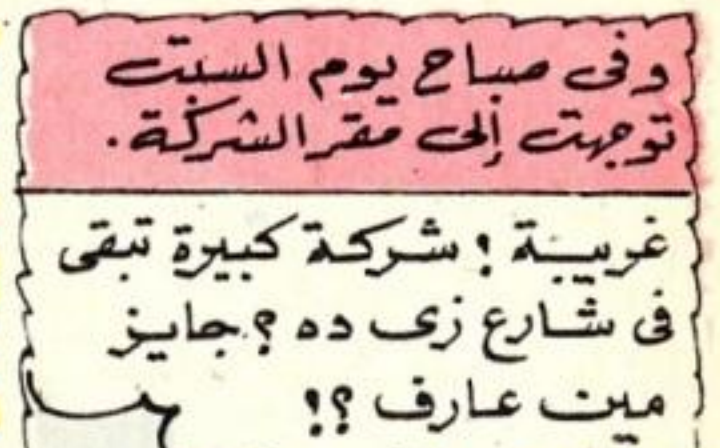 وفى صباح يوم السبت
توجهت إلى مقر الشركة.
غريبة ! شركة كبيرة تبقى
فى شارع زى ده ؟ جايز
مين عارف ؟!